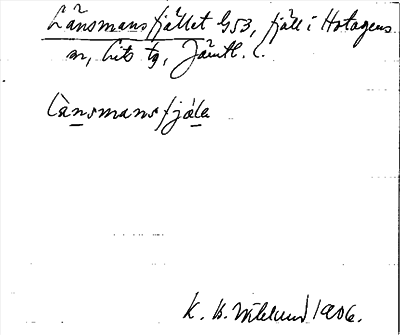 Länsmansfjället G53, fjäll i Hotagens
sn, Lits tg, Jämtl. l.
Lànsmansfjäłe
K. B. Wiklund 1906.